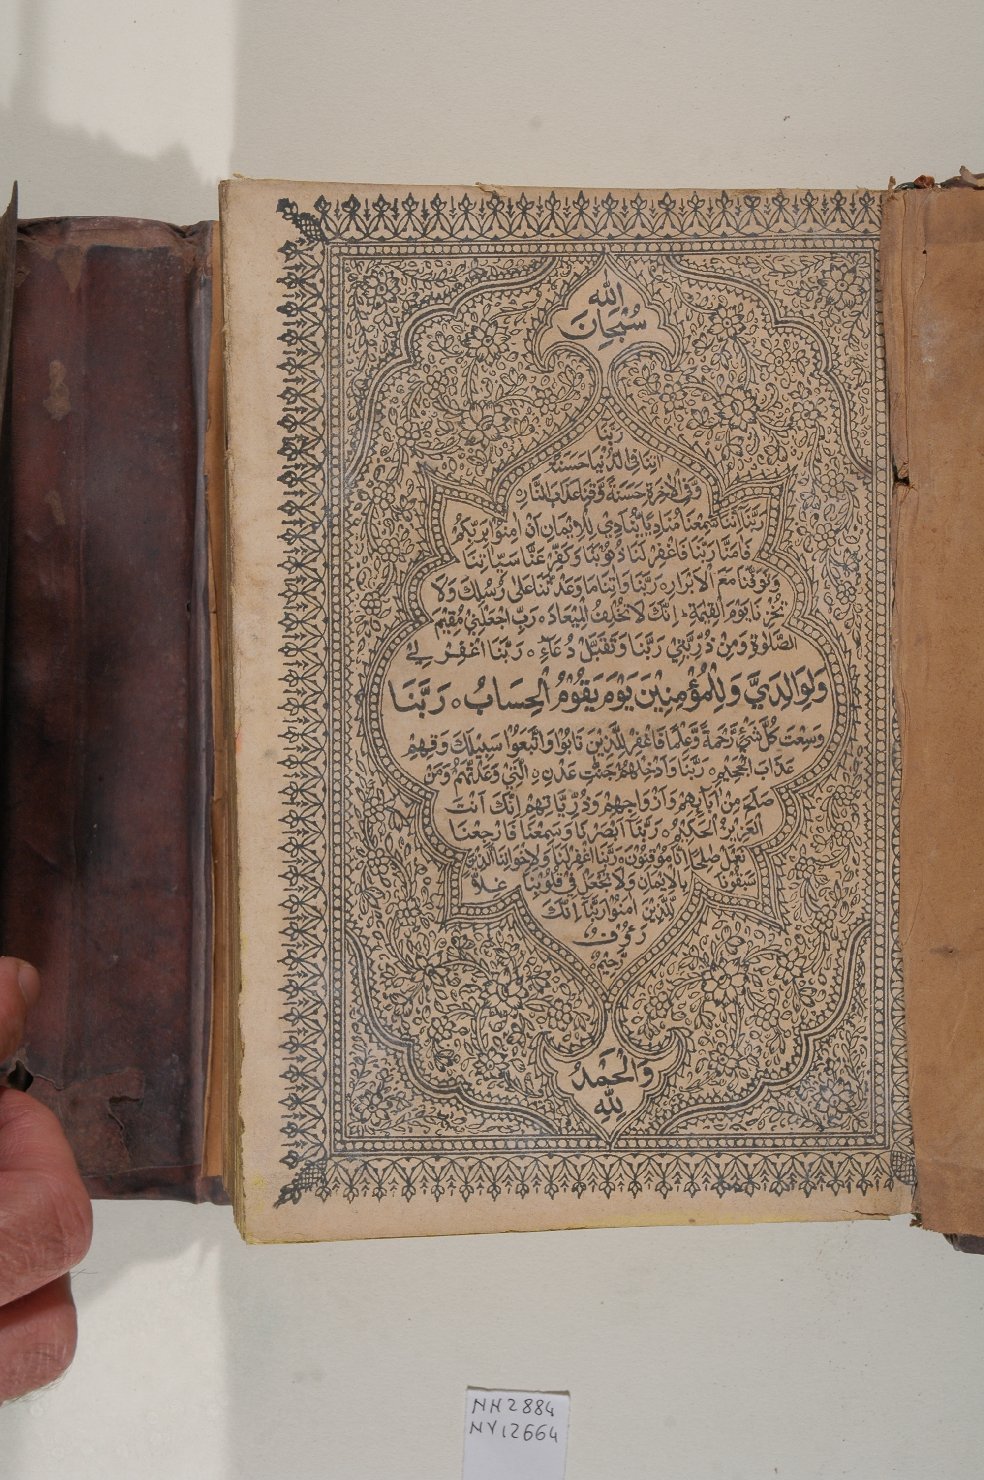 الله
سُبْحَانَ
رَبَّنَا
اٰتِنَا فِي الدُّنْيَا حَسَنَةً
وَّفِي الْاٰخِرَةِ حَسَنَةً وَّقِنَا عَذَابَ النَّارِ
رَبَّنَا اِنَّنَا سَمِعْنَا مُنَادِيًا يُّنَادِي لِلْاِيْمَانِ اَنْ اٰمِنُوْا بِرَبِّكُمْ
فَاٰمَنَّا رَبَّنَا فَاغْفِرْ لَنَا ذُنُوْبَنَا وَكَفِّرْ عَنَّا سَيِّاٰتِنَا
وَتَوَفَّنَا مَعَ الْاَبْرَارِ ه رَبَّنَا وَاٰتِنَا مَا وَعَدْتَّنَا عَلٰى رُسُلِكَ وَلَا
تُخْزِنَا يَوْمَ الْقِيٰمَةِ ه اِنَّكَ لَا تُخْلِفُ الْمِيْعَادَ ه رَبِّ اجْعَلْنِيْ مُقِيْمَ
الصَّلٰوةِ وَمِنْ ذُرِّيَّتِيْ رَبَّنَا وَتَقَبَّلْ دُعَآءِ ه رَبَّنَا اغْفِرْ لِيْ
وَلِوَالِدَيَّ وَلِلْمُؤْمِنِيْنَ يَوْمَ يَقُوْمُ الْحِسَابُ ه رَبَّنَا
وَسِعْتَ كُلَّ شَيْءٍ رَّحْمَةً وَّعِلْمًا فَاغْفِرْ لِلَّذِيْنَ تَابُوْا وَاتَّبَعُوْا سَبِيْلَكَ وَقِهِمْ
عَذَابَ الْجَحِيْمِ ه رَبَّنَا وَاَدْخِلْهُمْ جَنّٰتِ عَدْنِ ه الَّتِيْ وَعَدْتَّهُمْ وَمَنْ
صَلَحَ مِنْ اٰبَآئِهِمْ وَاَزْوَاجِهِمْ وَذُرِّيَّاتِهِمْ اِنَّكَ اَنْتَ
الْعَزِيْزُ الْحَكِيْمُ ه رَبَّنَآ اَبْصَرْنَا وَسَمِعْنَا فَارْجِعْنَا
نَعْمَلْ صَالِحًا اِنَّا مُوْقِنُوْنَ ه رَبَّنَا اغْفِرْ لَنَا وَلِاِخْوَانِنَا الَّذِيْنَ
سَبَقُوْنَا بِالْاِيْمَانِ وَلَا تَجْعَلْ فِيْ قُلُوْبِنَا غِلًّا
لِّلَّذِيْنَ اٰمَنُوْا رَبَّنَا اِنَّكَ
رَءُوْفٌ
رَّحِيْمٌ
وَالْحَمْدُ
لِلّٰهِ
NH2884
NY12664